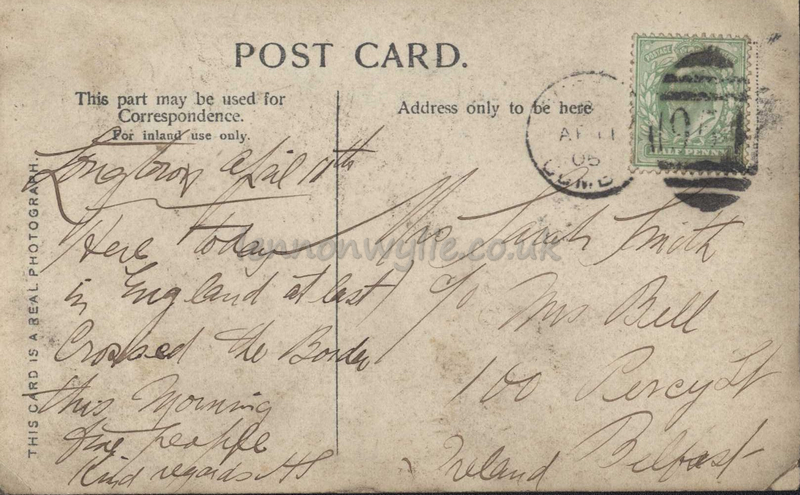 POST CARD.
This part may be used for
Correspondence.
For inland use only.
Address only to be here
THIS CARD IS A REAL PHOTOGRAPH.
Longtown April 11th
Here today
in England at last
Crossed the Border
this Morning
fine people
Kind regards AS
Mrs Sarah Smith
c/o Mrs Bell
100 Percy St
Ireland Belfast
AP 11
05
CUMB
HALFPENNY
lennonwylie.co.uk